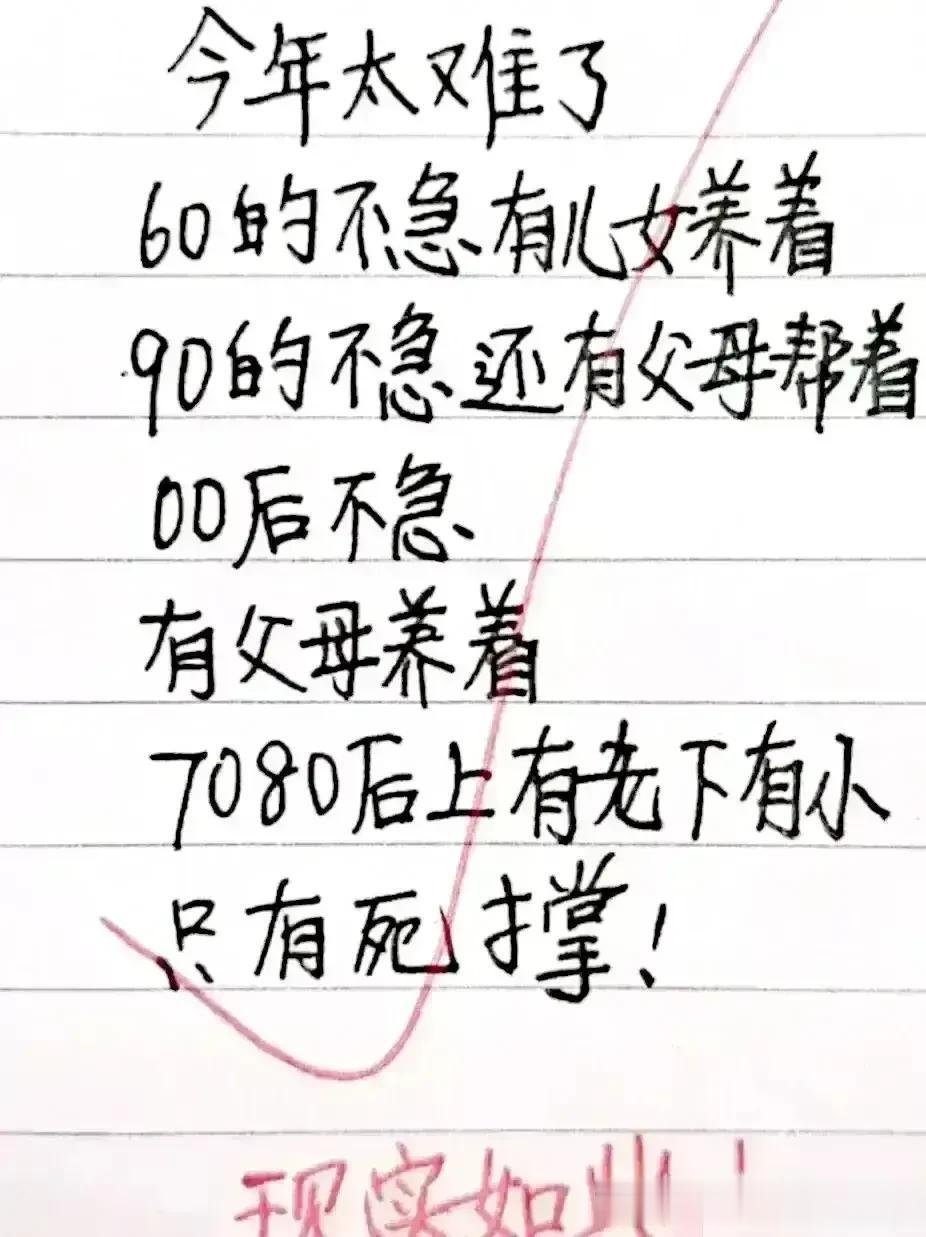 今年太难了
60的不急有儿女养着
90的不急还有父母帮着
00后不急
有父母养着
7080后上有老下有小
只有死撑!
现实如此!